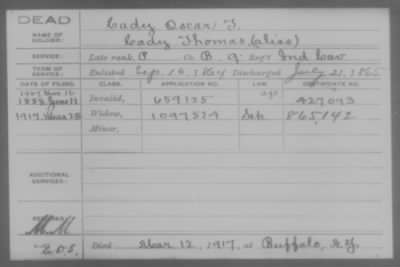 DEAD
NAME OF SOLDIER: Cady Oscar T.
Cady Thomas, (alias)
SERVICE: Late rank, P. Co. B, 9" Reg't Ind Cav
TERM OF SERVICE: Enlisted Sep. 16, 1864 Discharged July 21, 1865
DATE OF FILING. CLASS. APPLICATION NO. LAW. CERTIFICATE NO.
1907 Mar 16 age
1888 June 11 Invalid, 659125 427093
1917 Mar 28 Widow, 1097524 865142
Minor,
ADDITIONAL SERVICES:
REMARKS:
M.M
Died Mar 12, 1917, at Buffalo, N.Y.